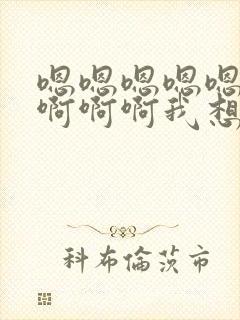 嗯嗯嗯嗯嗯
啊啊啊我想
科布倫茨市